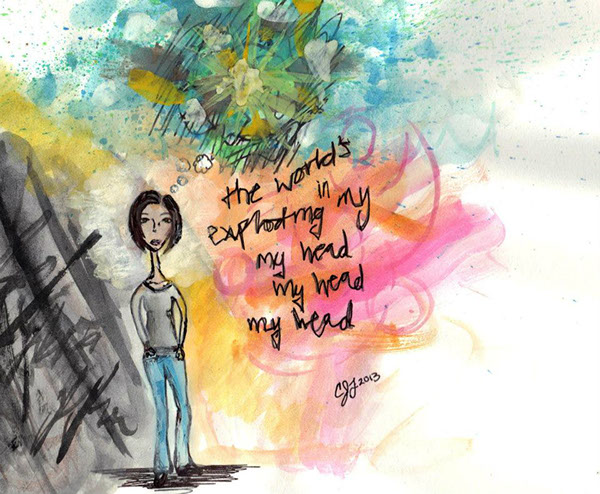 the world's
exploding in my
my head
my head
my head
2013